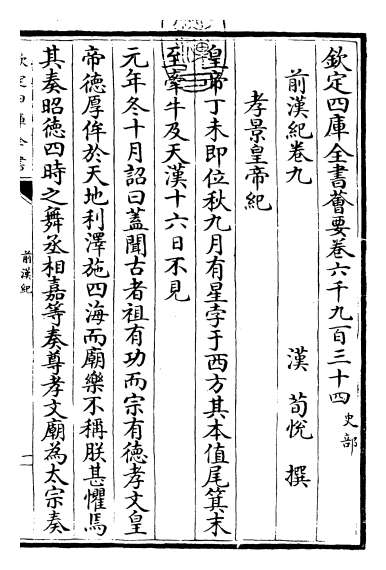 欽定四庫全書薈要卷六千九百三十四 史部
前漢紀卷九
漢 荀悅 撰
孝景皇帝紀
皇帝丁未即位秋九月有星孛于西方其本值尾箕末
至牽牛及天漢十六日不見
元年冬十月詔曰蓋聞古者祖有功而宗有德孝文皇
帝德厚侔於天地利澤施四海而廟樂不稱朕甚懼焉
其奏昭德四時之舞丞相嘉等奏尊孝文廟為太宗奏
欽定四庫全書
前漢紀
一